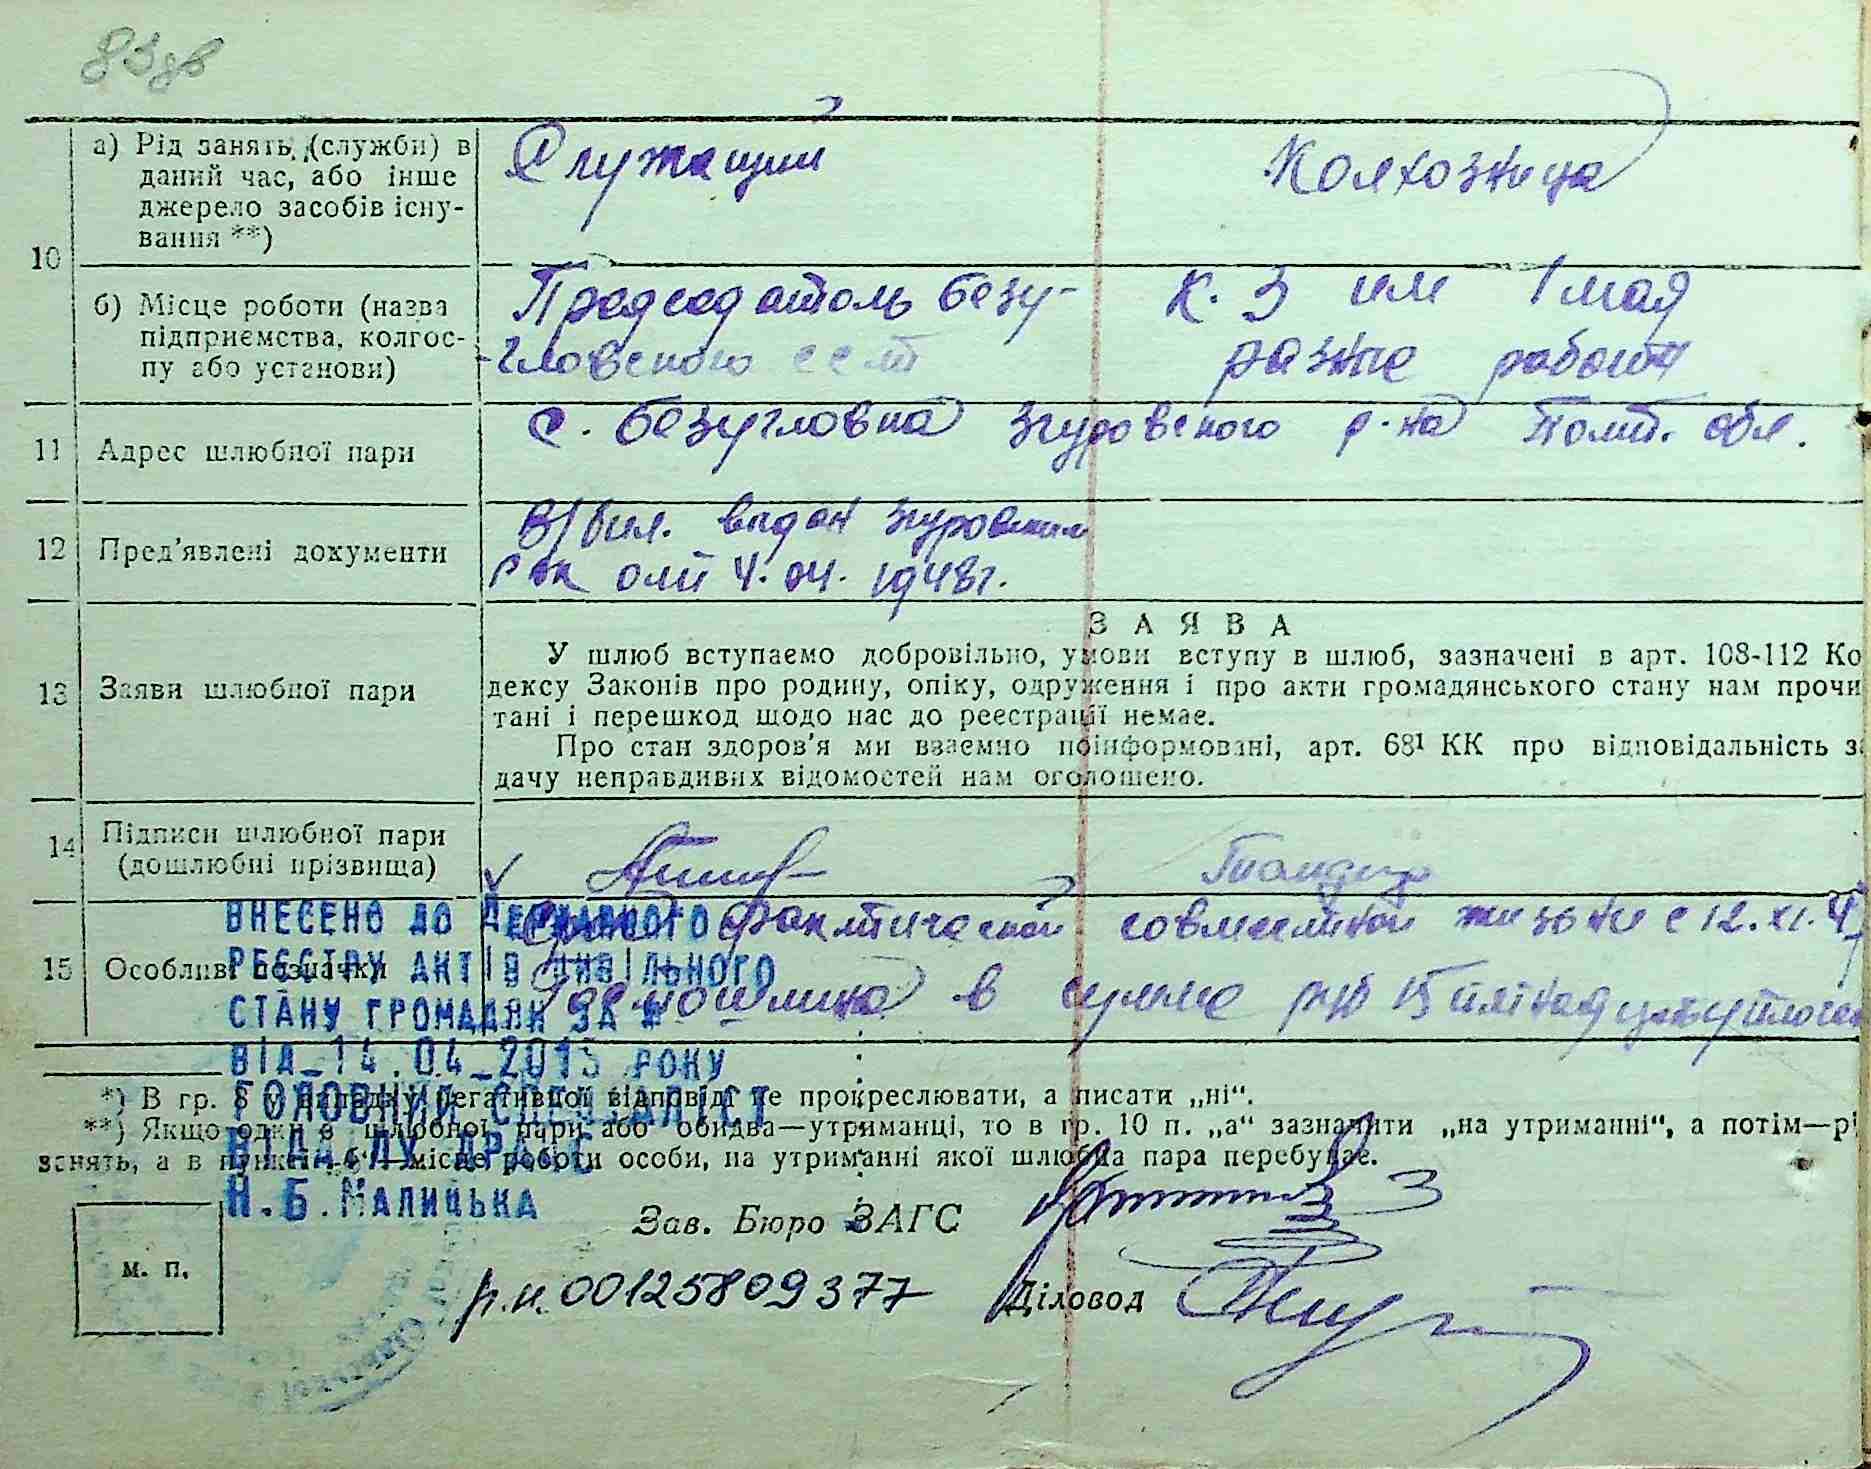 83 дв
10
а) Рід занять (служби) в даний час, або інше джерело засобів існування **)
Служащий
Колхозница
б) Місце роботи (назва підприємства, колгоспу або установи)
Председатель Безу-
-гловского
К. З им 1 мая
разные работы
11
Адрес шлюбної пари
с. Безугловка Згуровского р-на Полт. обл.
12
Пред'явлені документи
В/бил. выдан Згуровским
РВК 4. 04. 1948г.
13
Заяви шлюбної пари
ЗАЯВА
У шлюб вступаємо добровільно, умови вступу в шлюб, зазначені в арт. 108-112 Ко
дексу Законів про родину, опіку, одруження і про акти громадянського стану нам прочи
тані і перешкод щодо нас до реєстрації немає.
Про стан здоров'я ми взаємно поінформовані, арт. 68¹ КК про відповідальність за
дачу неправдивих відомостей нам оголошено.
14
Підписи шлюбної пари
(дошлюбні прізвища)
15
Особливі позначки
фактической совместной жизни с 12. XI. 47
Госпошлина в сумме руб 15
ВНЕСЕНО ДО ДЕРЖАВНОГО
РЕЄСТРУ АКТІВ ЦИВІЛЬНОГО
СТАНУ ГРОМАДЯН ЗА #
ВІД_14.04_2015 РОКУ
ГОЛОВНИЙ СПЕЦІАЛІСТ
ВІДДІЛУ ДРАЦС
Н.Б.МАЛИЦЬКА
*) В гр. 8 у випадку негативної відповіді не прокреслювати, а писати „ні“.
**) Якщо один з шлюбної пари або обидва—утриманці, то в гр. 10 п. „а“ зазначити „на утриманні“, а потім—рі
занять, а в пункті „б“ місце роботи особи, на утриманні якої шлюбна пара перебуває.
м. п.
Зав. Бюро ЗАГС
р.н. 00125809377
Діловод